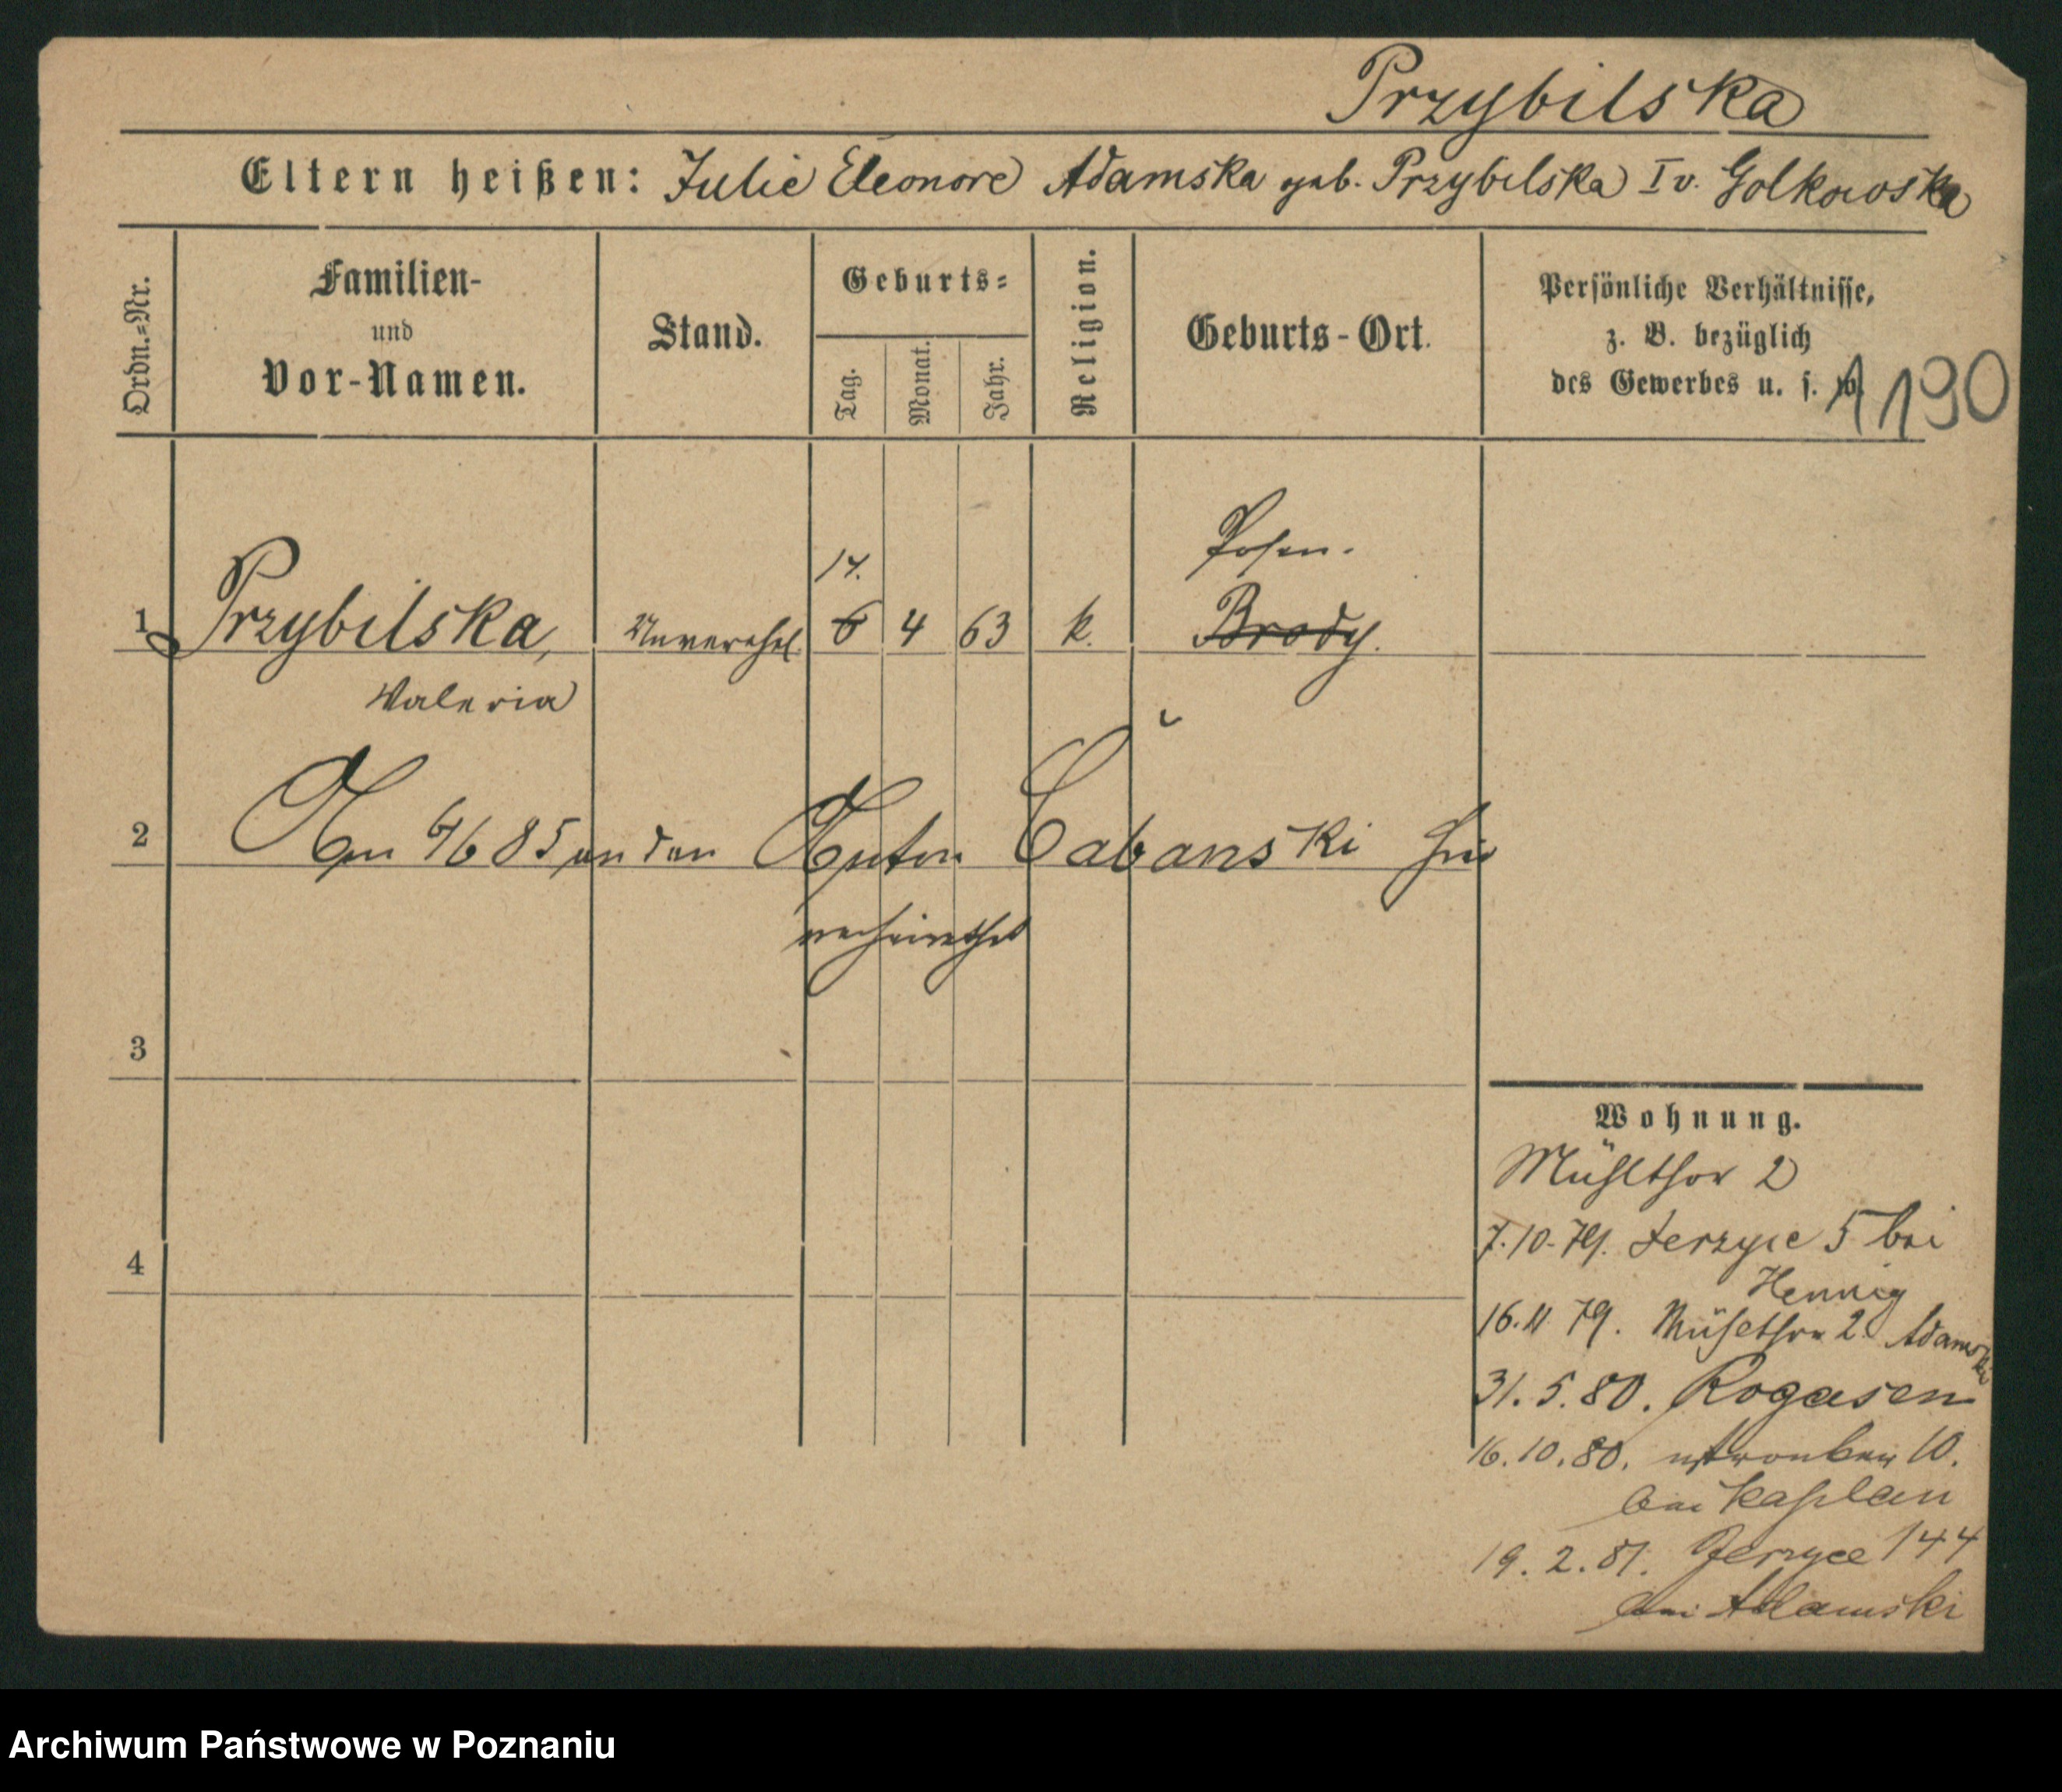 Przybilska
Eltern heißen: Julie Eleonore Adamska geb. Przybilska I v. Golkowska
Ordn.-Nr.
Familien-
und
Vor-Namen.
Stand.
Geburts-
Tag.
Monat.
Jahr.
Religion.
Geburts-Ort.
Persönliche Verhältnisse,
z. B. bezüglich
des Gewerbes u. s. w.
1190
Posen.
14.
1 Przybilska, Unverehel. 6 4 63 k. Brody.
Valeria
2 Am 4/6 85 an den Anton Cabanski hier
verheirathet
3
4
Wohnung.
Mühlthor 2
7.10.79. Jerzyce 5 bei
Hennig
16.11 79. Mühlthor 2. Adamski
31.5.80. Rogasen
16.10.80. 10.
bei Kaplan
19.2.81. Jerzyce 144
bei Adamski
Archiwum Państwowe w Poznaniu